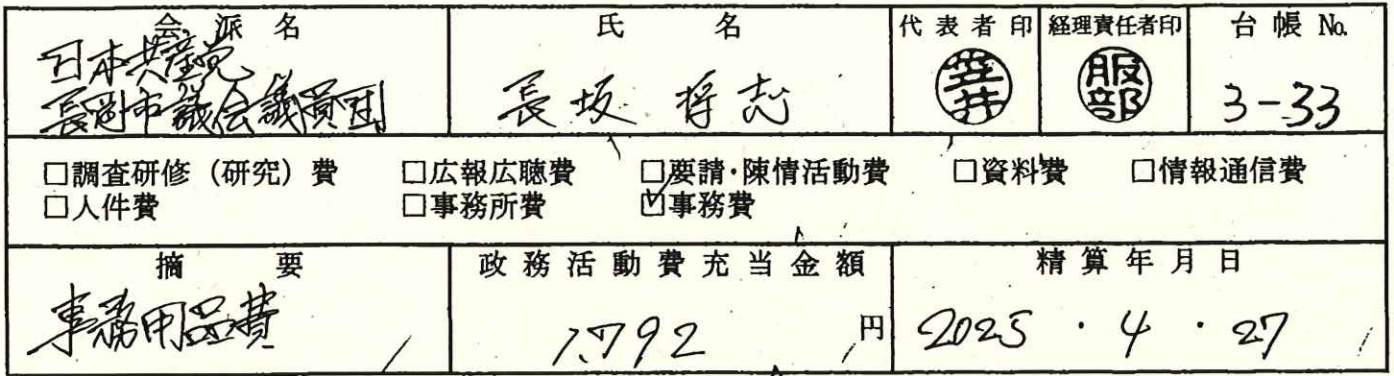 会派名 氏名 代表者印 経理責任者印 台帳No.
日本共産党
長岡市議会議員団 長坂 将志 笠井 服部 3-33
□調査研修(研究)費 □広報広聴費 □要請・陳情活動費 □資料費 □情報通信費
□人件費 □事務所費 ☑事務費
摘要 政務活動費充当金額 精算年月日
事務用品費 1,792円 2025・4・27